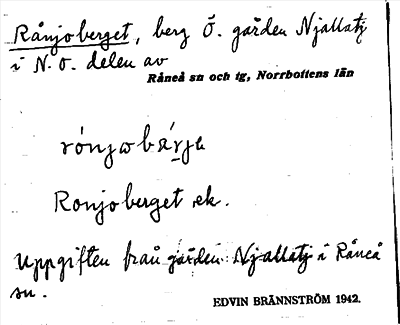 Rånjoberget, berg Ö. gården Njallatj
i N. O. delen av
Råneå sn och tg, Norrbottens län
rónjωbárjə
Ronjoberget ek.
Uppgiften från gården Njallatj i Råneå
sn.
EDVIN BRÄNNSTRÖM 1942.